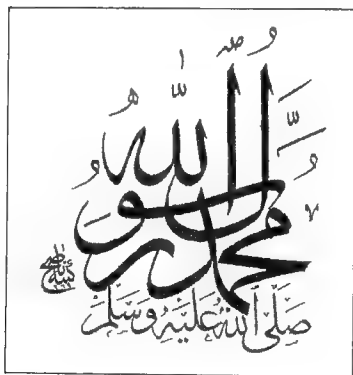 محمد رسول الله
صَلَّى ٱللهُ عَلَيْهِ وَسَلَّمَ